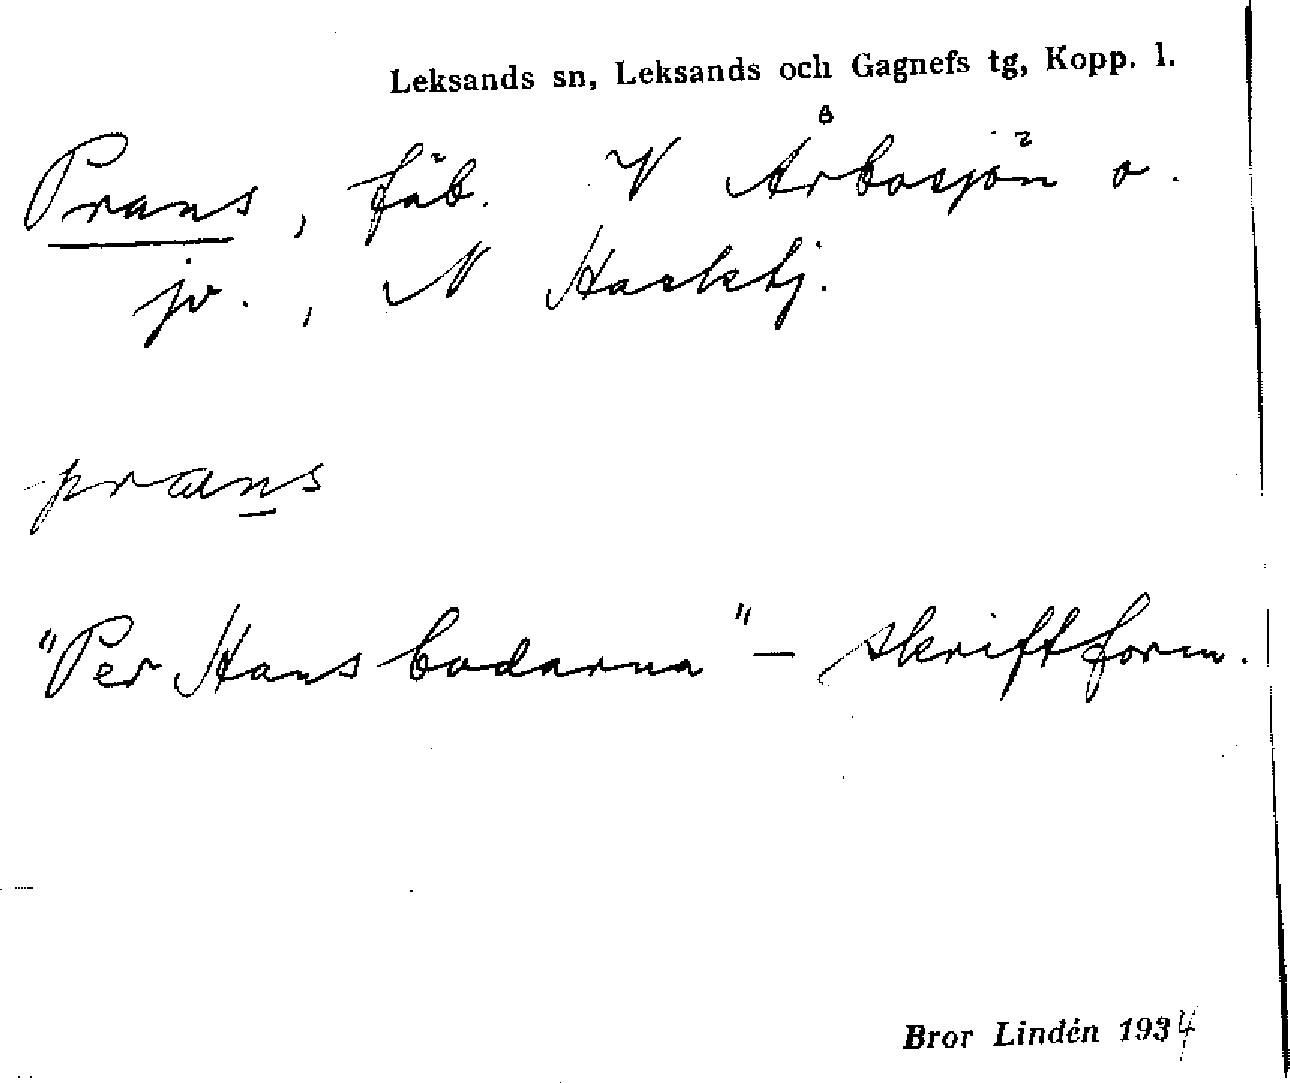 Leksands sn, Leksands och Gagnefs tg, Kopp. l.
Prans, fäb. V Årbosjön o.
jv., N Hackbj.
prans
"Per Hans bodarna" – skriftform.
Bror Lindén 1934